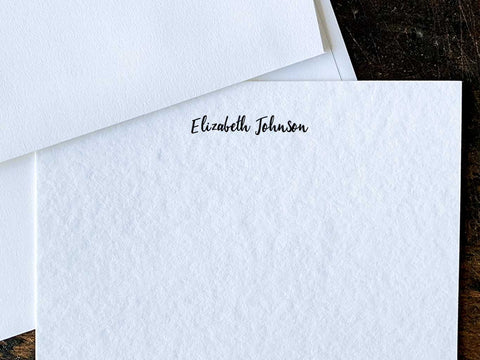 Elizabeth Johnson